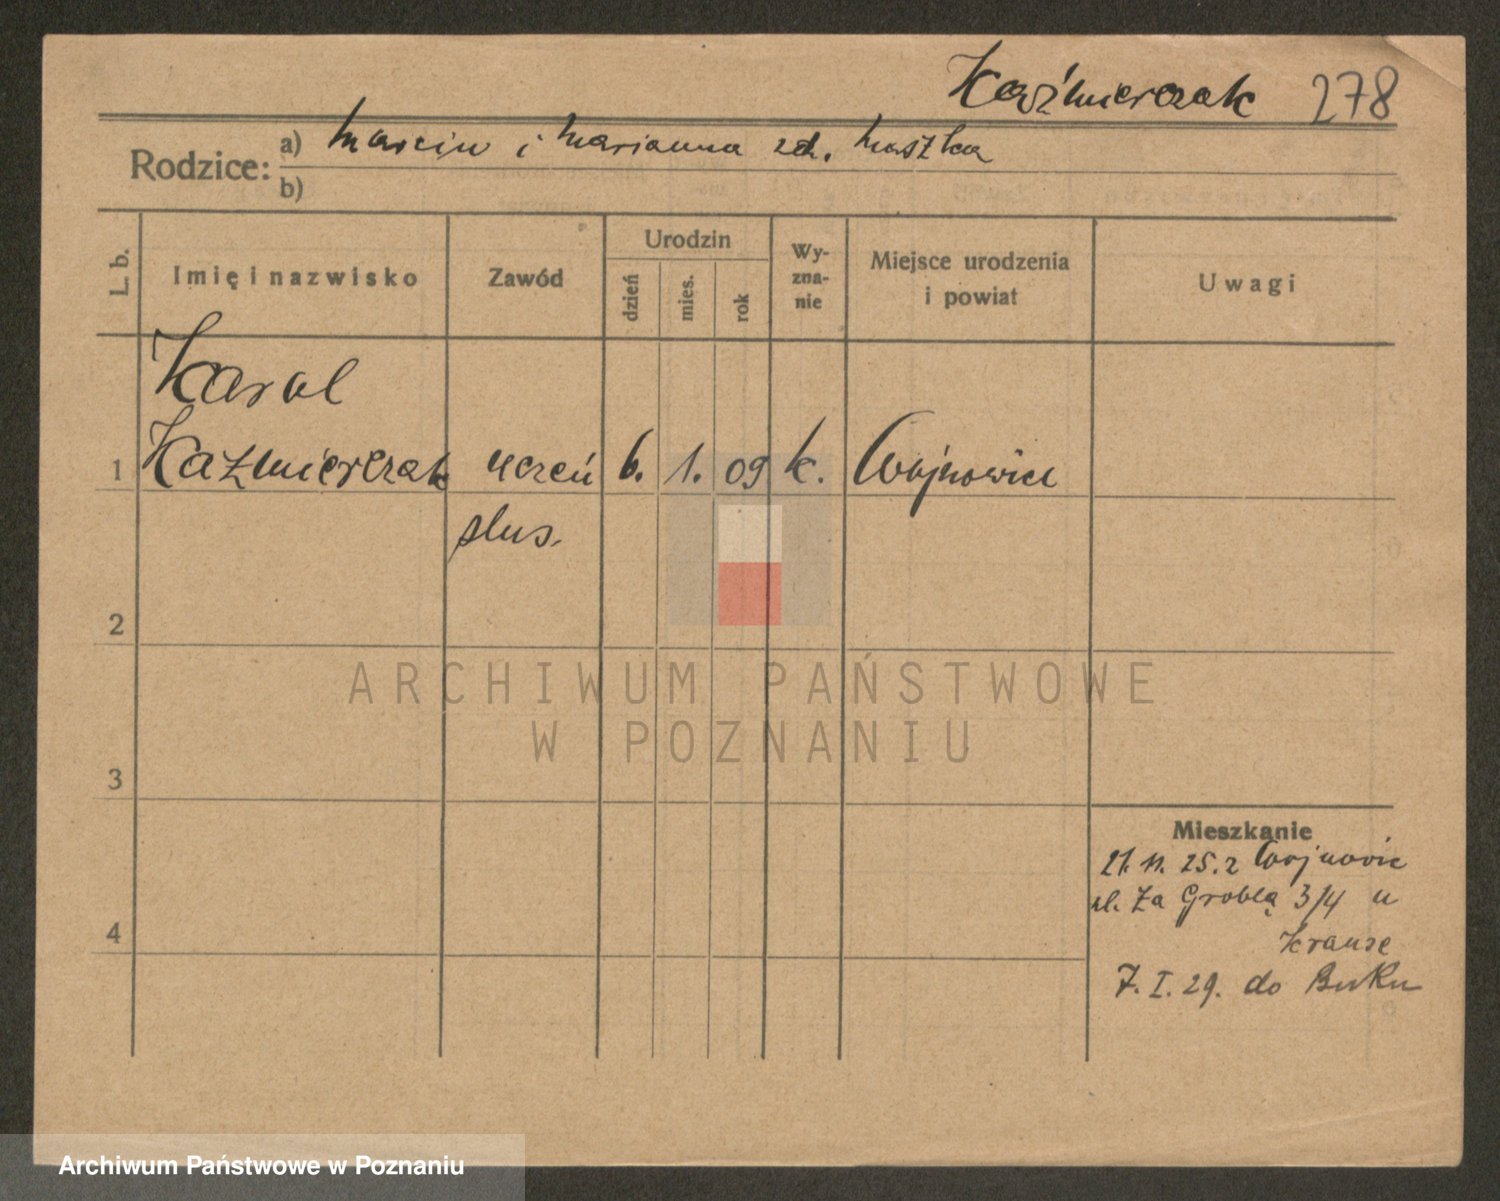 Kaźmierczak 278
Rodzice: a) Marcin i Marianna zd.
b)
L. b. Imię i nazwisko Zawód Urodzin dzień mies. rok Wy-zna-nie Miejsce urodzenia i powiat Uwagi
Karol
1 Kaźmierczak uczeń 6. 1. 09 k. Wojnowice
ślus.
2
ARCHIWUM PAŃSTWOWE
W POZNANIU
3
Mieszkanie
21. 11. 25. z Wojnowic
ul. Za Groblą 3/4 u
4 Krause
7. I. 29. do Buku
Archiwum Państwowe w Poznaniu